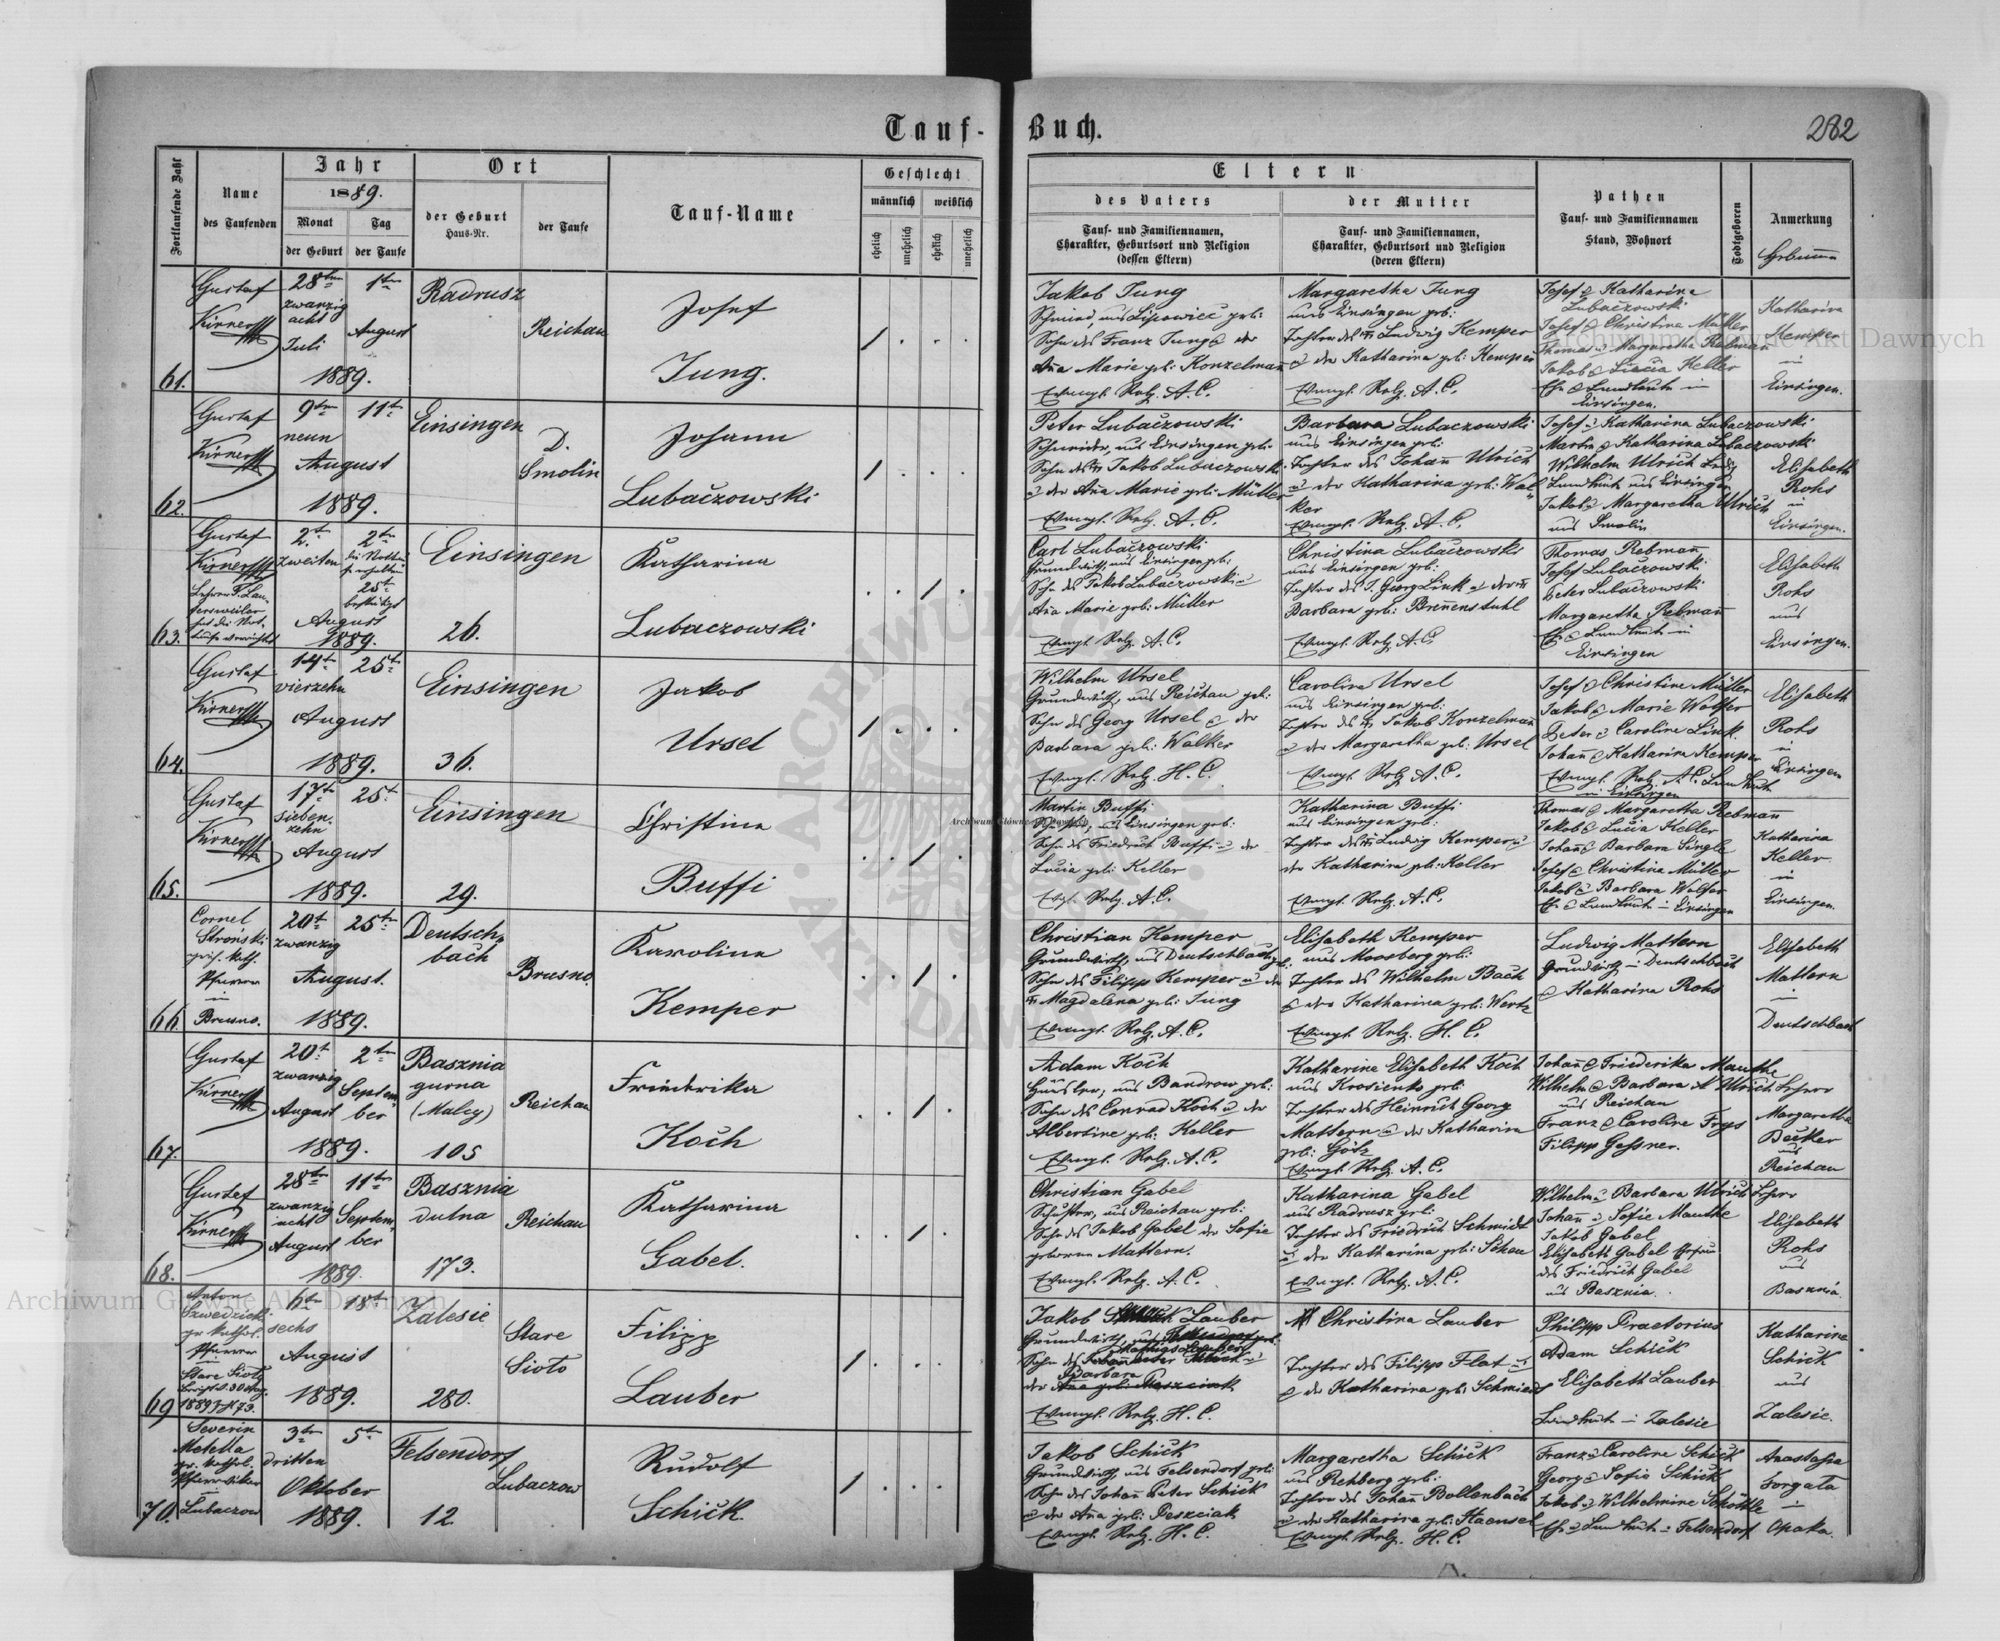 Tauf-Buch.
282
Fortlaufende Zahl
Name
des Taufenden
Jahr
1889.
Monat
der Geburt
Tag
der Taufe
Ort
der Geburt
Haus-Nr.
der Taufe
Tauf-Name
Geschlecht
männlich
weiblich
ehelich
unehelich
ehelich
unehelich
Eltern
des Vaters
Tauf- und Familiennamen,
Charakter, Geburtsort und Religion
(dessen Eltern)
der Mutter
Tauf- und Familiennamen,
Charakter, Geburtsort und Religion
(deren Eltern)
Pathen
Tauf- und Familiennamen
Stand, Wohnort
Todtgeboren
Anmerkung
61.
Gustaf
Kirner
28ten
zwanzig
acht
Juli
1ten
August
1889.
Radrusz
Reichau
Josef
Jung.
Jakob Jung
Schmied, aus Lipowiec geb:
Sohn des Franz Jung & der
Anna Marie geb: Konzelmann
Evangl. Relg. A. C.
Margaretha Jung
aus Einsingen geb:
Tochter des Ludwig Kemper
u der Katharina geb: Kemper
Evangl. Relg. A. C.
Josef & Katharina
Lubaczowski
Josef & Christina Müller
Thomas u Margaretha Rebmann
Jakob & Lucia Keller
Ehe & Landleute in
Einsingen.
Katharina
Kemper
in
Einsingen.
62.
Gustaf
Kirner
9ten
neun
11ten
August
1889.
Einsingen
D.
Smolin
Johann
Lubaczowski
Peter Lubaczowski
Schneider, aus Einsingen geb:
Sohn des Jakob Lubaczowski
u der Anna Marie geb: Müller
Evangl. Relg. A. C.
Barbara Lubaczowski
aus Einsingen geb:
Tochter des Johann Ulrich
u der Katharina geb: Wal=
ker
Evangl. Relg. A. C.
Josef u Katharina Lubaczowski
Martin & Katharina Lubaczowski
Wilhelm Ulrich ledig
Landleute aus Einsingen
Jakob & Margaretha Ulrich
aus Smolin
Elisabeth
Rohs
in
Einsingen.
63.
Gustaf
Kirner
2t
zweiten
2ten
25t
bestätigt
August
1889.
Einsingen
26.
Katharina
Lubaczowski
Carl Lubaczowski
Grundwirth, aus Einsingen geb:
Sohn des Jakob Lubaczowski u
Anna Marie geb: Müller
Evangl. Relg. A. C.
Christina Lubaczowski
aus Einsingen geb:
Tochter des J. Georg Link u der
Barbara geb: Brennenstuhl
Evangl. Relg. A. C.
Thomas Rebmann
Josef Lubaczowski
Peter Lubaczowski
Margaretha Rebmann
Ehe & Landleute in
Einsingen
Elisabeth
Rohs
aus
Einsingen.
64.
Gustaf
Kirner
14t
vierzehn
25t
August
1889.
Einsingen
36.
Jakob
Ursel
Wilhelm Ursel
Grundwirth, aus Reichau geb:
Sohn des Georg Ursel & der
Barbara geb: Walker
Evangl. Relg. H. C.
Carolina Ursel
aus Einsingen geb:
Tochter des Jakob Konzelmann
u der Margaretha geb: Ursel
Evangl. Relg. A. C.
Josef & Christine Müller
Jakob & Marie Walfer
Peter u Caroline Link
Johann & Katharina Kemper
Evangl. Relg. A. C. Landleute
in Einsingen
Elisabeth
Rohs
in
Einsingen
65.
Gustaf
Kirner
17t
sieben-
zehn
25t
August
1889.
Einsingen
29.
Christina
Buffi
Martin Buffi
aus Einsingen geb:
Sohn des Friedrich Buffi u der
Lucia geb: Keller
Evgl. Relg. A. C.
Katharina Buffi
aus Einsingen geb:
Tochter des Ludwig Kemper u
der Katharina geb: Keller
Evangl. Relg. A. C.
Thomas & Margaretha Rebmann
Jakob & Lucia Keller
Johann & Barbara Single
Josef & Christina Müller
Jakob & Barbara Walfer
Ehe & Landleute in Einsingen
Katharina
Keller
in
Einsingen.
66.
Cornel
Stroński
Pfarrer
in
Brusno.
20t
zwanzig
25ten
August.
1889.
Deutsch=
bach
Brusno.
Karolina
Kemper
Christian Kemper
Grundwirth, aus Deutschbach geb:
Sohn des Filipp Kemper u der
Magdalena geb: Jung
Evangl. Relg. A. C.
Elisabeth Kemper
aus Moosberg geb:
Tochter des Wilhelm Bach
& der Katharina geb: Wertz
Evangl. Relg. H. C.
Ludwig Mattern
Grundwirth in Deutschbach
& Katharina Rohs
Elisabeth
Mattern
in
Deutschbach
67.
Gustaf
Kirner
20t
zwanzig
August
2ten
Septem=
ber
1889.
Basznia
gurna
(Maley)
105
Reichau
Friedrika
Koch
Adam Koch
Häusler, aus Bandrow geb:
Sohn des Conrad Koch u der
Albertine geb: Keller
Evangl. Relg. A. C.
Katharine Elisabeth Koch
aus Krosienko geb:
Tochter des Heinrich Georg
Mattern & der Katharina
geb: Götz
Evangl. Relg. A. C.
Johann & Friederika Mauthe
Wilhelm & Barbara Ulrich
aus Reichau
Franz & Caroline Frys
Filipp Gessner.
Margaretha
Becker
aus
Reichau
68.
Gustaf
Kirner
28ten
zwanzig
acht
August
11ten
Septem=
ber
1889.
Basznia
dulna
173.
Reichau
Katharina
Gabel.
Christian Gabel
Schuster, aus Reichau geb:
Sohn des Jakob Gabel der Sofie
geboren Mattern.
Evangl. Relg. A. C.
Katharina Gabel
aus Radrusz geb:
Tochter des Friedrich Schmidt
u der Katharina geb: Schau
Evangl. Relg. A. C.
Wilhelm u Barbara Ulrich
Johann u Sofie Mauthe
Jakob Gabel
Elisabeth Gabel Ehefrau
des Friedrich Gabel
aus Basznia.
Elisabeth
Rohs
aus
Basznia
69
Anton
Szwedzicki
gr. kathol.
Pfarrer
in
Stare Sioło
6ten
sechs
18ten
August
1889.
Zalesie
280.
Stare
Sioło
Filipp
Lauber
Jakob Lauber
Mathias Lauber
Barbara
Evangl. Relg. H. C.
Christina Lauber
Tochter des Filipp Flat u
& der Katharina geb: Schmied
Philipp Praetorius
Adam Schick
Elisabeth Lauber
Landleute in Zalesie
Katharina
Schick
aus
Zalesie.
70.
Severin
Metella
gr. kathol.
in
Lubaczow
3ten
dritten
5ten
Oktober
1889.
Felsendorf
12.
Lubaczow
Rudolf
Schick.
Jakob Schick
Grundwirth, aus Felsendorf geb:
Sohn des Johann Peter Schick
u der Anna geb: Peszciak
Evangl. Relg. H. C.
Margaretha Schick
aus Rehberg geb:
Tochter des Johann Bollenbach
u der Katharina geb: Haensel
Evangl. Relg. H. C.
Franz u Caroline Schick
Georg & Sofie Schick
Jakob u Wilhelmine Schöttle
Ehe u Landleute in Felsendorf
Anastasia
Forgata
in
Opaka.
Archiwum Główne Akt Dawnych